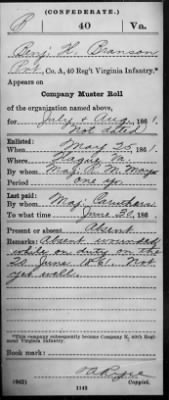 (CONFEDERATE.)
B 40 Va.
Benj. H. Branson
Pvt, Co. A, 40 Reg't Virginia Infantry.*
Appears on
Company Muster Roll
of the organization named above,
for July & Aug, 1861.
Not dated
Enlisted:
When May 25, 1861.
Where Hague Va.
By whom Maj. R. M. Mayo
Period one yr.
Last paid:
By whom Maj. Caruthers
To what time June 30, 186
Present or absent Absent
Remarks: Absent wounded
while on duty on the
20 June 1861. Not
yet well.
*This company subsequently became Company K, 40th Regiment Virginia Infantry.
Book mark:
(642)
1142
Copyist.